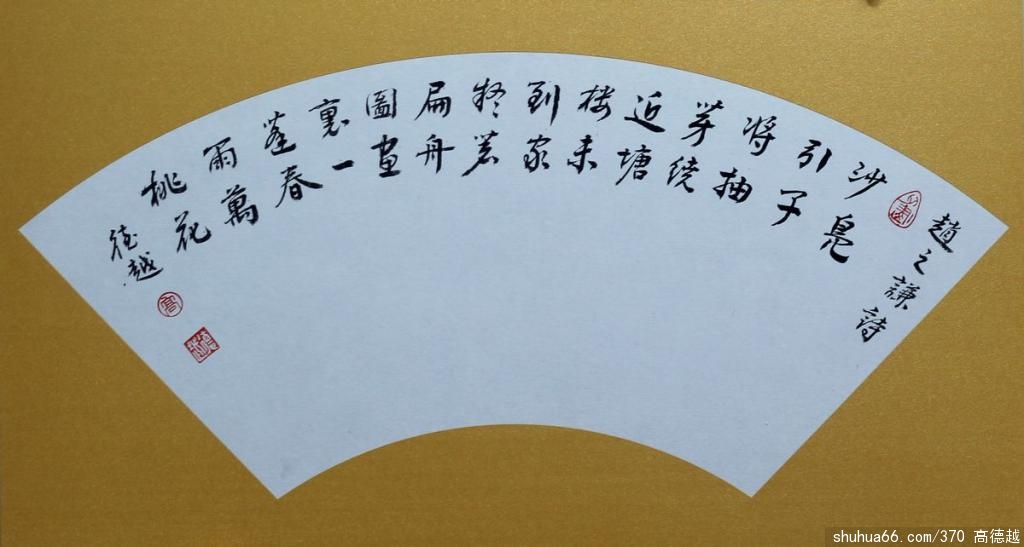 趙之謙詩
沙凫
引子
将抽
芽繞
近塘
楼未
到家
扁舟
圖畫
裏一
蓬春
雨萬
桃花
德越
高
shuhua66.com/370 高德越